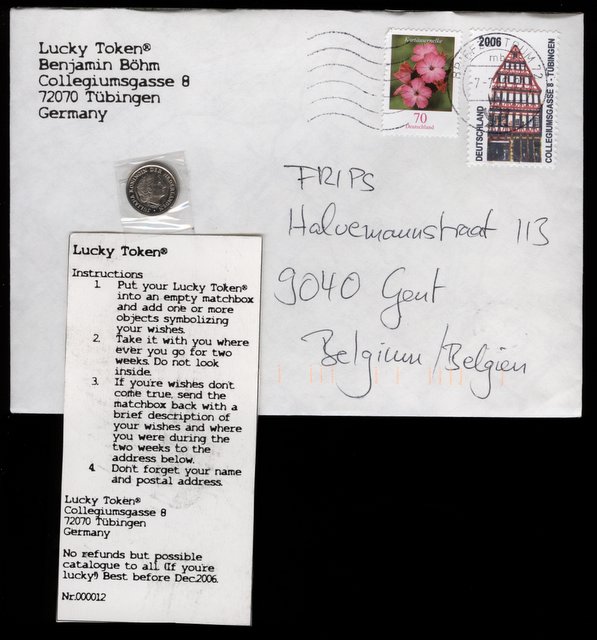 Lucky Token®
Benjamin Böhm
Collegiumsgasse 8
72070 Tübingen
Germany
Kartäusernelke
70
Deutschland
2006
DEUTSCHLAND
COLLEGIUMSGASSE 8 - TÜBINGEN
BRIEFZENTRUM 72
mb
FRIPS
Halvemaanstraat 113
9040 Gent
Belgium/Belgien
Lucky Token®
Instructions
1. Put your Lucky Token®
into an empty matchbox
and add one or more
objects symbolizing
your wishes.
2. Take it with you where
ever you go for two
weeks. Do not look
inside.
3. If you're wishes don't
come true, send the
matchbox back with a
brief description of
your wishes and where
you were during the
two weeks to the
address below.
4. Don't forget your name
and postal address.
Lucky Token®
Collegiumsgasse 8
72070 Tübingen
Germany
No refunds but possible
catalogue to all. (If you're
lucky!) Best before Dec.2006.
Nr.000012